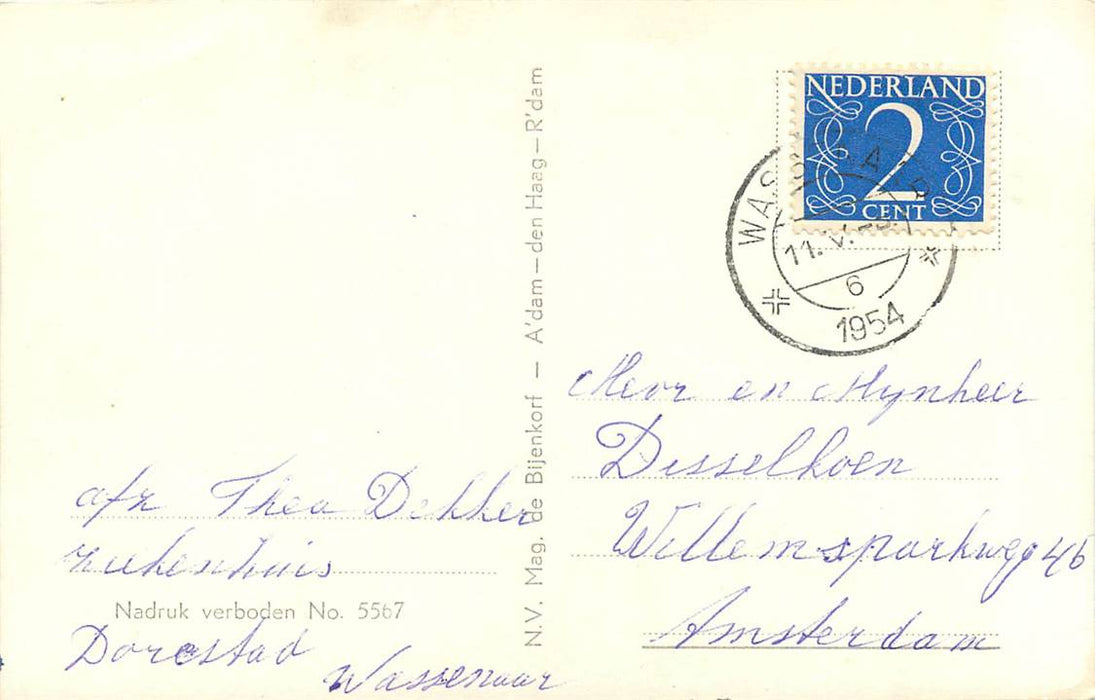 NEDERLAND
2
CENT
WASSENAAR
11.V.
6
1954
afz Thea Dekker
ziekenhuis
Nadruk verboden No. 5567
Dorestad
Wassenaar
N.V. Mag. de Bijenkorf — A'dam—den Haag—R'dam
Mevr en Mynheer
Disselkoen
Willemsparkweg 46
Amsterdam